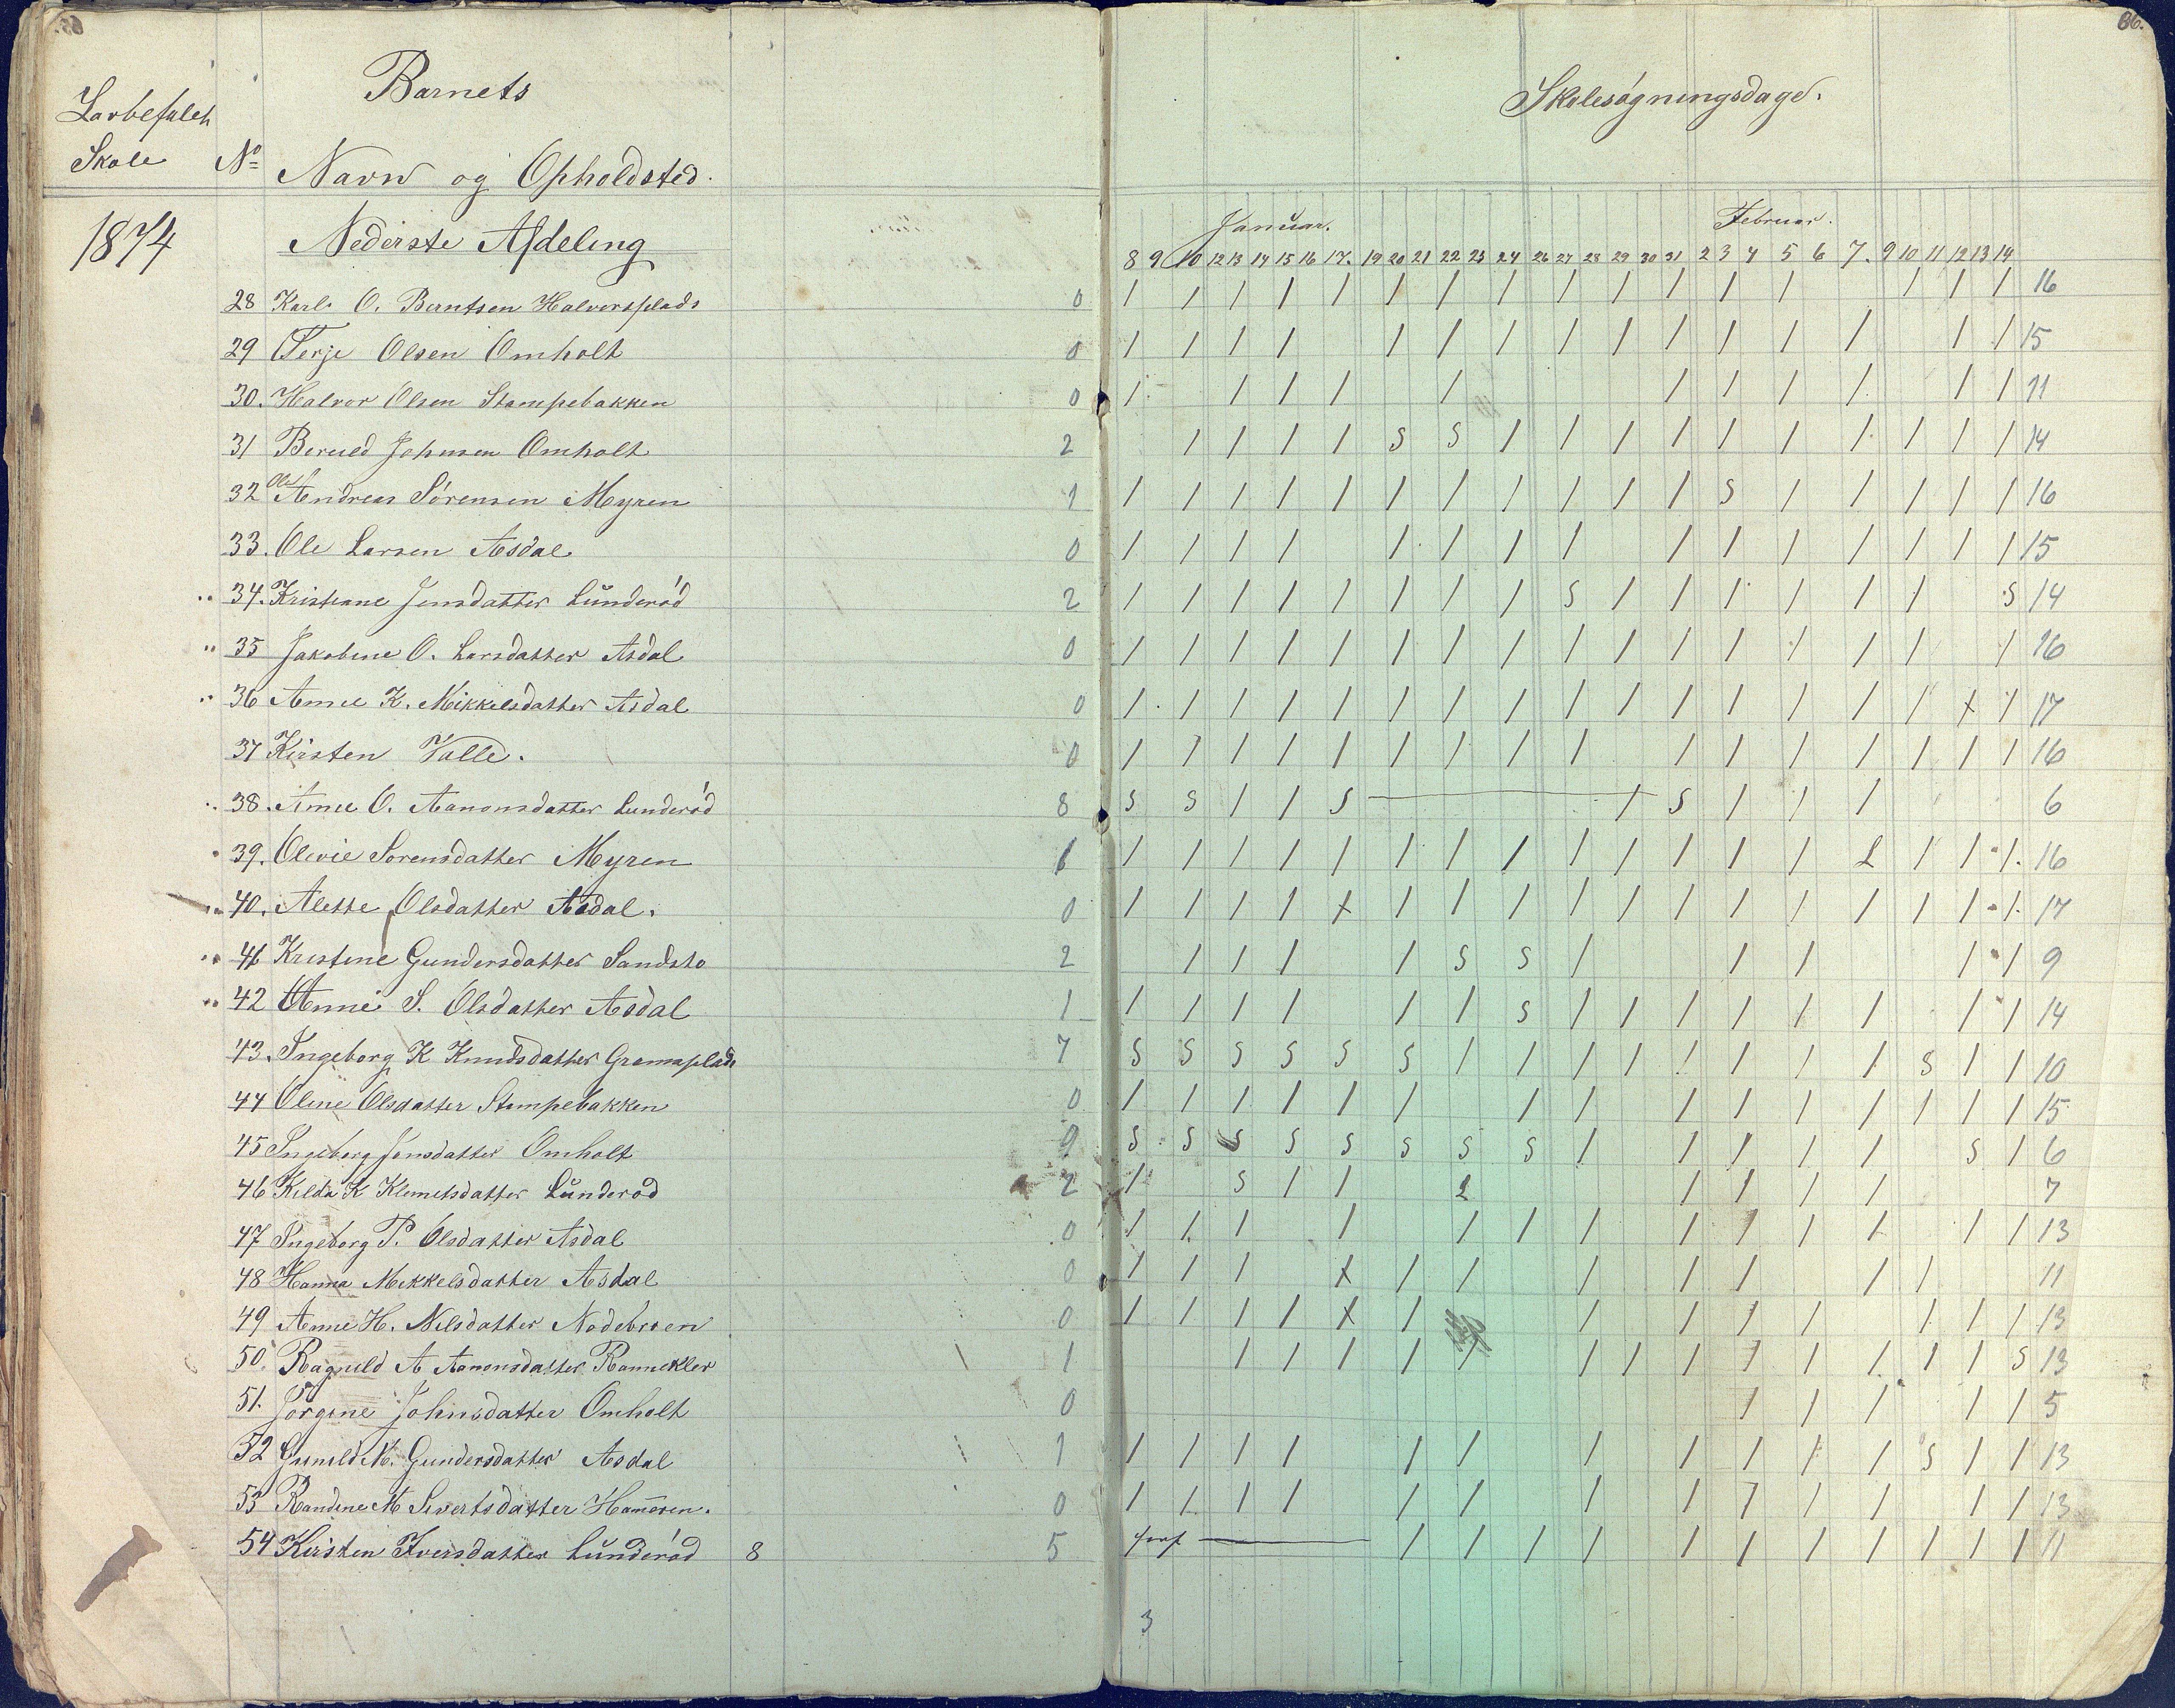 65.
86.
Skole
Barnets
Skolesøgningsdage.
No Navn og Opholdsted.
1874
Nederste Afdeling
Januar. Februar.
8 9 10 12 13 14 15 16 17. 19 20 21 22 23 24 26 27 28 29 30 31 2 3 4 5 6 7. 9 10 11 12 13 14
28 Karl O. Berntsen Halvorsplads 0 / / / / / / / / / / / / / / / / 16
29 Terje Olsen Omholt 0 / / / / / / / / / / / / / / / 15
30. Halvor Olsen Stampebakken 0 / / / / / / / / / / / 11
31 Johnsen Omholt 2 / / / / S S / / / / / / / / / / 14
32 Ole Andreas Sørensen Myren 1 / / / / / / / / / / / S / / / / / 16
33. Ole Larsen Asdal 0 / / / / / / / / / / / / / / / 15
34. Kristiane Jensdatter Lunderød 2 / / / / / / / / S / / / / / / S 14
35 Jakobine O. Larsdatter Asdal 0 / / / / / / / / / / / / / / / / 16
36 Anne K. Mikkelsdatter Asdal 0 / / / / / / / / / / / / / / / x / 17
37 Kirsten Valle. 0 / / / / / / / / / / / / / / / / 16
38. Anne O. Aanonsdatter Lunderød 8 S S / / S / S / / / 6
39. Olevie Sorensdatter Myren 1 / / / / / / / / / / / / / L / / / 16
40. Alette Olsdatter Asdal. 0 / / / / x / / / / / / / / / / / / 17
41 Kristine Gundersdatter Sandsto 2 / / / / S S / / / / / 9
42 Anne S. Olsdatter Asdal 1 / / / / / / S / / / / / / / / 14
43. Ingeborg K Knudsdatter 7 S S S S S S / / / / / / / / S / / 10
44 Oline Olsdatter Stampebakken 0 / / / / / / / / / / / / / / / 15
45 Ingeborg Jensdatter Omholt 9 S S S S S S S S / / / / / S / 6
46 K Klemetsdatter Lunderød 2 / S / / L / / / / 7
47 Ingeborg P. Olsdatter Asdal 0 / / / / / / / / / / / / / 13
48 Hanna Mekkelsdatter Asdal 0 / / / x / / / / / / / 11
49 Anne H. Nilsdatter Nodebroen 0 / / / / x / / / / / / / / 13
50. Ragnild A Aanonsdatter Rannekler 1 / / / / / / / / / / / / / S 13
51. Jörgine Johnsdatter Omholt 0 / / / / / 5
52 Gunild M. Gundersdatter Asdal 1 / / / / / / / / / / / S / / 13
53 Randine M Sivertsdatter Hameren. 0 / / / / / / / / / / / / / 13
54 Kirsten Iversdatter Lunderød 8 5 / / / / / / / / / / / 11
3